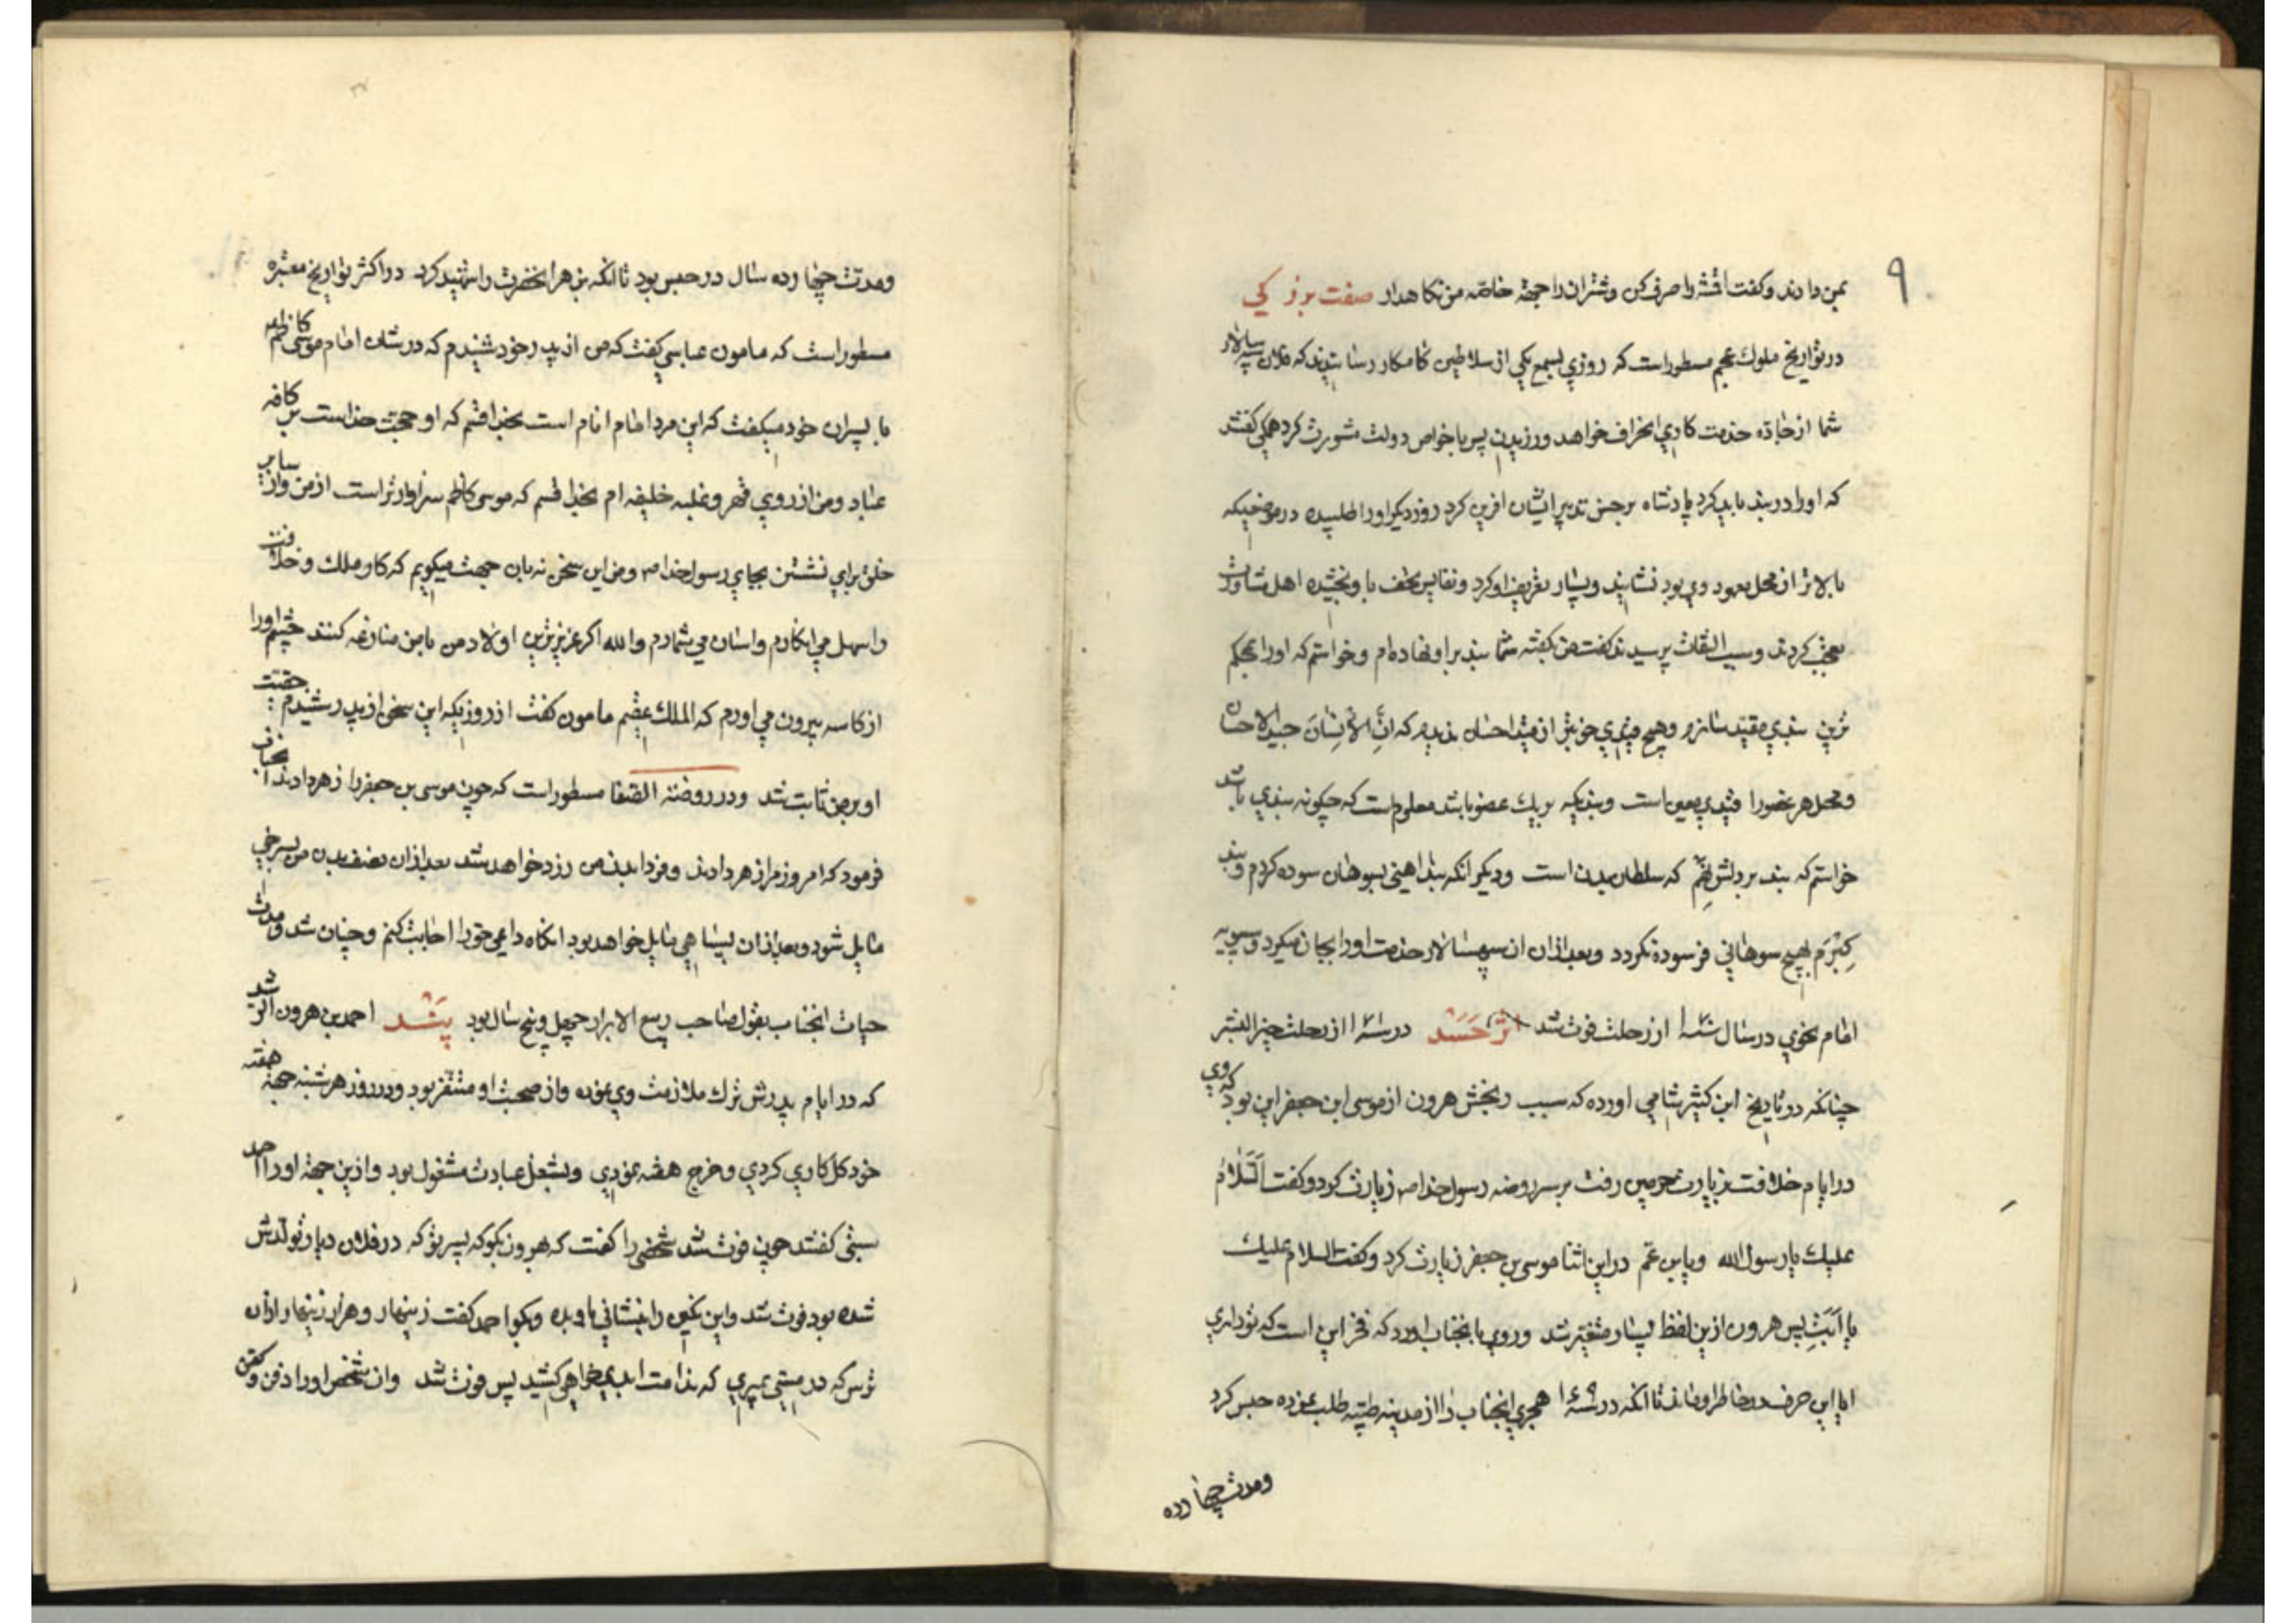 ۹
بمن دادند و کفت اقمشه را صرف کن و شتران را جهة خاصّه من نکاهدار صفت بزرکی
در تواریخ ملوك عجم مسطور است که روزی بسمع یکی از سلاطین کامکار رسانیدند که فلان سپه سالار
شما از جادّه خدمت کاری انحراف خواهد ورزیدن پس با خواص دولت مشورت کرد همکی کفتند
که او را در بند باید کرد پادشاه بر حسن تدبیر ایشان افرین کرد روز دیکر او را طلبیده در موضعیکه
بالاتر از محل معهود وی بود نشانید و بسیار تعریف او کرد و نفایس تحف باو بخشیده اهل مشاورت
تعجب کردند و سبب التفات پرسیدند کفت من بکفته شما بند بر او نهاده ام و خواستم که او را بمحکم
ترین بندی مقید سازم و هیچ قیدی خوبتر از قید احسان ندیدم که انّ الانسانَ عبید الاحسان
و محل هر عضو را قیدی معین است و بندیکه بر یك عضو باشد معلوم است که چکونه بندی باشد
خواستم که بند بر دلش نهم که سلطان بدن است و دیکر انکه بند اهنی بسوهان سوده کردد و بند
کرَم بهیچ سوهانی فرسوده نکردد و بعد از ان ان سپهسالار خدمت او را بجان میکرد و سیبویه
امام نحوی در سال ۱ از رحلت فوت شد اثر حَسَد در سنه ۱ از رحلت خیر البشر
چنانکه در تاریخ ابن کثیر شامی اورده که سبب رنجش هرون از موسی ابن جعفر این بود که وی
در ایام خلافت بزیارت حرمین رفت بر سر روضه رسول خدا ص زیارت کرد و کفت اَلسَّلامُ
علیك یا رسول الله و یابن عم در این اثنا موسی بن جعفر زیارت کرد و کفت السلام علیك
یا اَبَتِ پس هرون ازین لفظ بسیار متغیّر شد و روی بانجناب اورد که فخر این است که تو داری
اما این حرف در خاطر او ماند تا انکه در سنه ۱ هجری انجناب را از مدینه طیّبه طلب نموده حبس کرد
و مدت چهارده
و مدّت چهارده سال در حبس بود تا انکه بزهر انحضرت را شهید کرد در اکثر تواریخ معتبره
مسطور است که مامون عباسی کفت که من از پدر خود شنیدم که در شان امام موسی کاظم
با پسران خود میکفت که این مرد امام انام است بخدا قسم که او حجت خداست بر کافه
عباد و من از روی قهر و غلبه خلیفه ام بخدا قسم که موسی کاظم سزاوارتر است از من و از سایر
خلق برای نشستن بجای رسول خدا ص و من این سخن نه بان جهت میکویم که کار ملك و خلافت
را سهل می انکارم و اسان می شمارم والله اکر عزیزترین اولاد من با من منازعه کنند چشم او را
از کاسه بیرون می اورم که الملك عقیم مامون کفت از روزیکه این سخن از پدر شنیدم حقیت
او بر من ثابت شد و در روضة الصفا مسطور است که چون موسی بن جعفر را زهر دادند انجناب
فرمود که امروز مرا زهر دادند و فردا بدن من زرد خواهد شد بعد از ان نصف بدن من بسرخی
مایل شود و بعد از ان بسیاهی مایل خواهد بود انکاه داعی حق را اجابت کنم و چنان شد و مدت
حیات انجناب بقول صاحب ربیع الابرار چهل و پنج سال بود پَنْد احمد بن هرون الرشید
که در ایام پدرش ترك ملازمت وی نموده و از صحبت او متنفر بود و در روز هر شنبه جهة هفته
خود کل کاری کردی و خرج هفته نمودی و بشغل عبادت مشغول بود و ازین جهة او را احمد
سبتی کفتند چون فوت شد شخصی را کفت که بهرون بکو که پسر تو که در فلان دیار تولدش
شده بود فوت شد و این نکین را بنشانی باو بده و بکو احمد کفت زینهار و هزار زینهار از ان
ترس که در مستی بمیری که ندامت ابدی خواهی کشید پس فوت شد و ان شخص او را دفن و کفن